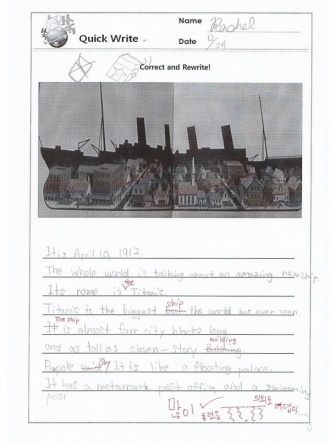 Name Rachel
Quick Write
Date
Correct and Rewrite!
It is April 10, 1912
The whole world is talking about an amazing new ship
the
Its name is Titanic
ship
Titanic is the biggest the world has ever seen
The ship
It is almost four city blocks long
building
and as tall as eleven-story
say
Papole It is like a floating palace.
It has a restaurants post office and a swimming
pool
많이